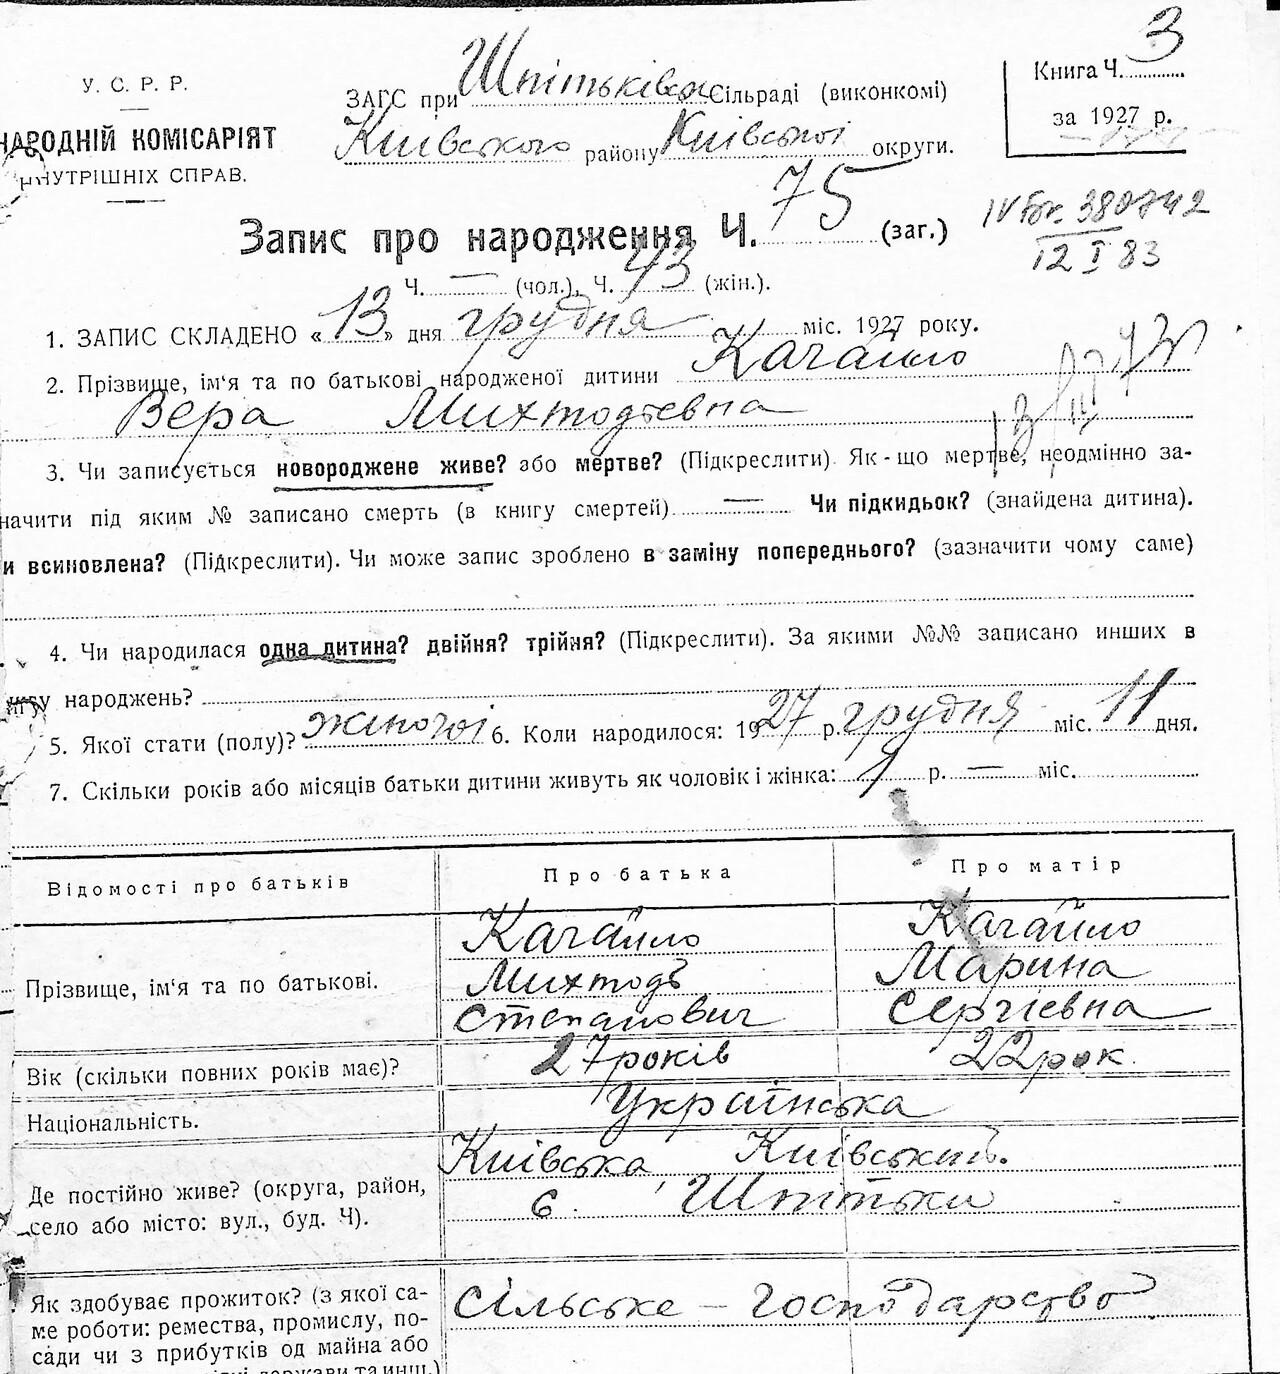 Книга Ч. 3
за 1927 р.
У. С. Р. Р.
НАРОДНІЙ КОМІСАРІЯТ
ВНУТРІШНІХ СПРАВ.
ЗАГС при Шпітьківськ Сільраді (виконкомі)
Київського району Київської округи.
Запис про народження Ч. 75 (заг.)
Ч. — (чол.), Ч. 43 (жін.).
IV 380742
12 I 83
1. ЗАПИС СКЛАДЕНО «13» дня грудня міс. 1927 року.
2. Прізвище, ім'я та по батькові народженої дитини Качайло
Вера Михтодьевна
3. Чи записується новороджене живе? або мертве? (Підкреслити). Як-що мертве, неодмінно за-
начити під яким № записано смерть (в книгу смертей) — Чи підкидьок? (знайдена дитина).
и всиновлена? (Підкреслити). Чи може запис зроблено в заміну попереднього? (зазначити чому саме)
4. Чи народилася одна дитина? двійня? трійня? (Підкреслити). За якими №№ записано инших в
книгу народжень?
5. Якої стати (полу)? жіночої 6. Коли народилося: 1927 р. грудня міс. 11 дня.
7. Скільки років або місяців батьки дитини живуть як чоловік і жінка: 1 р. — міс.
Відомості про батьків Про батька Про матір
Прізвище, ім'я та по батькові. Качайло Качайло
Михтодь Марина
Степанович Сергіевна
Вік (скільки повних років має)? 27 років 22 рок.
Національність. Українська
Де постійно живе? (округа, район,
село або місто: вул., буд. Ч).
Київська, Київськ
с. Шпітьки
Як здобуває прожиток? (з якої са-
ме роботи: ремества, промислу, по-
сади чи з прибутків од майна або
держави та инш.)
Сільське – господарство